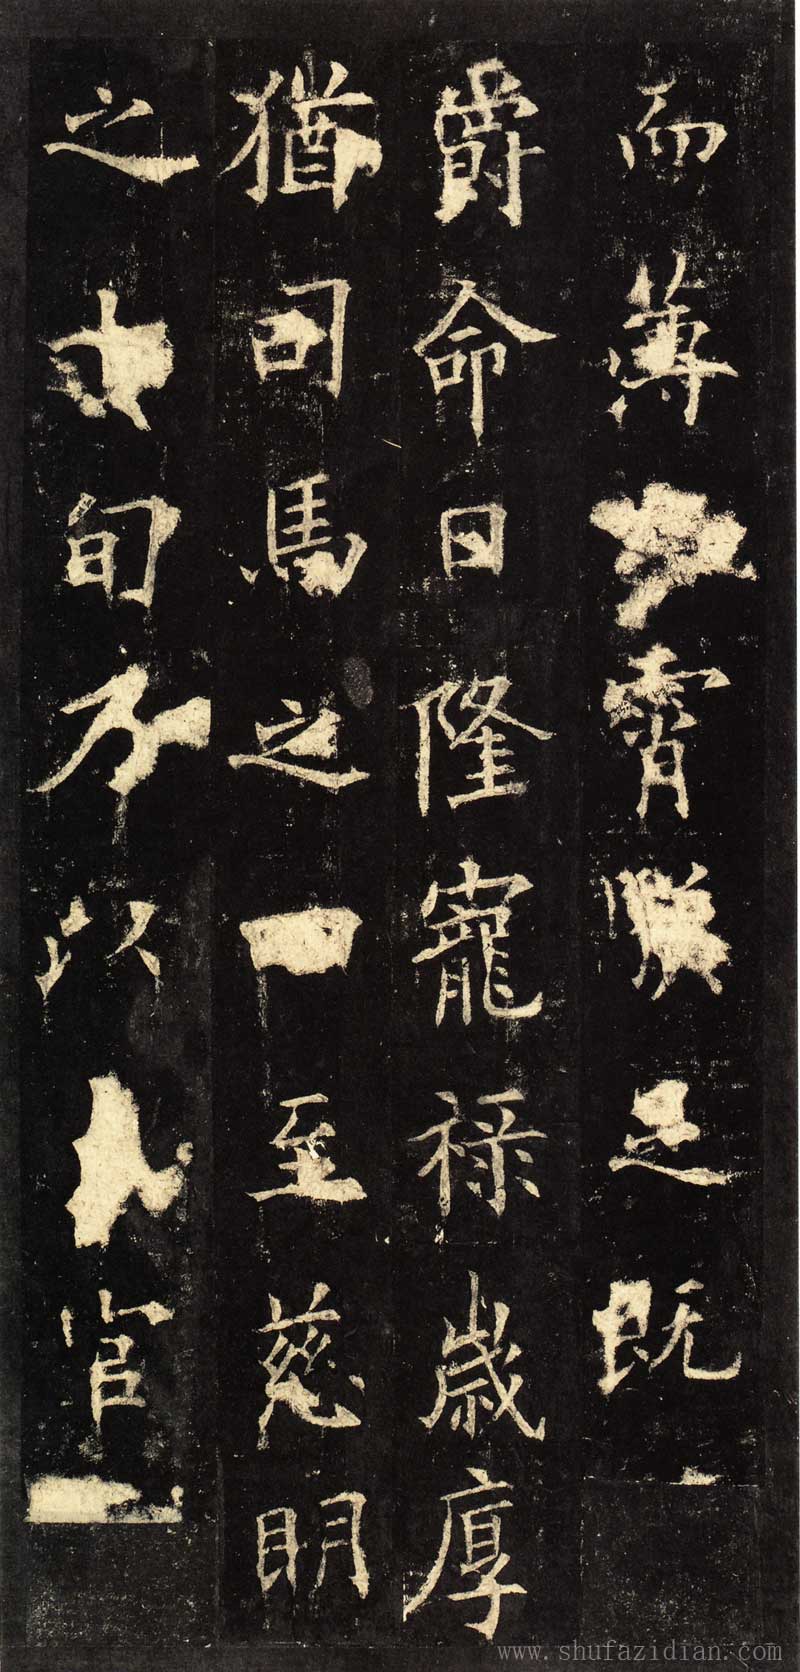 而薄霄足既
爵命日隆寵祿歲厚
猶司馬之一至慈明
之旬方以官
www.shufazidian.com